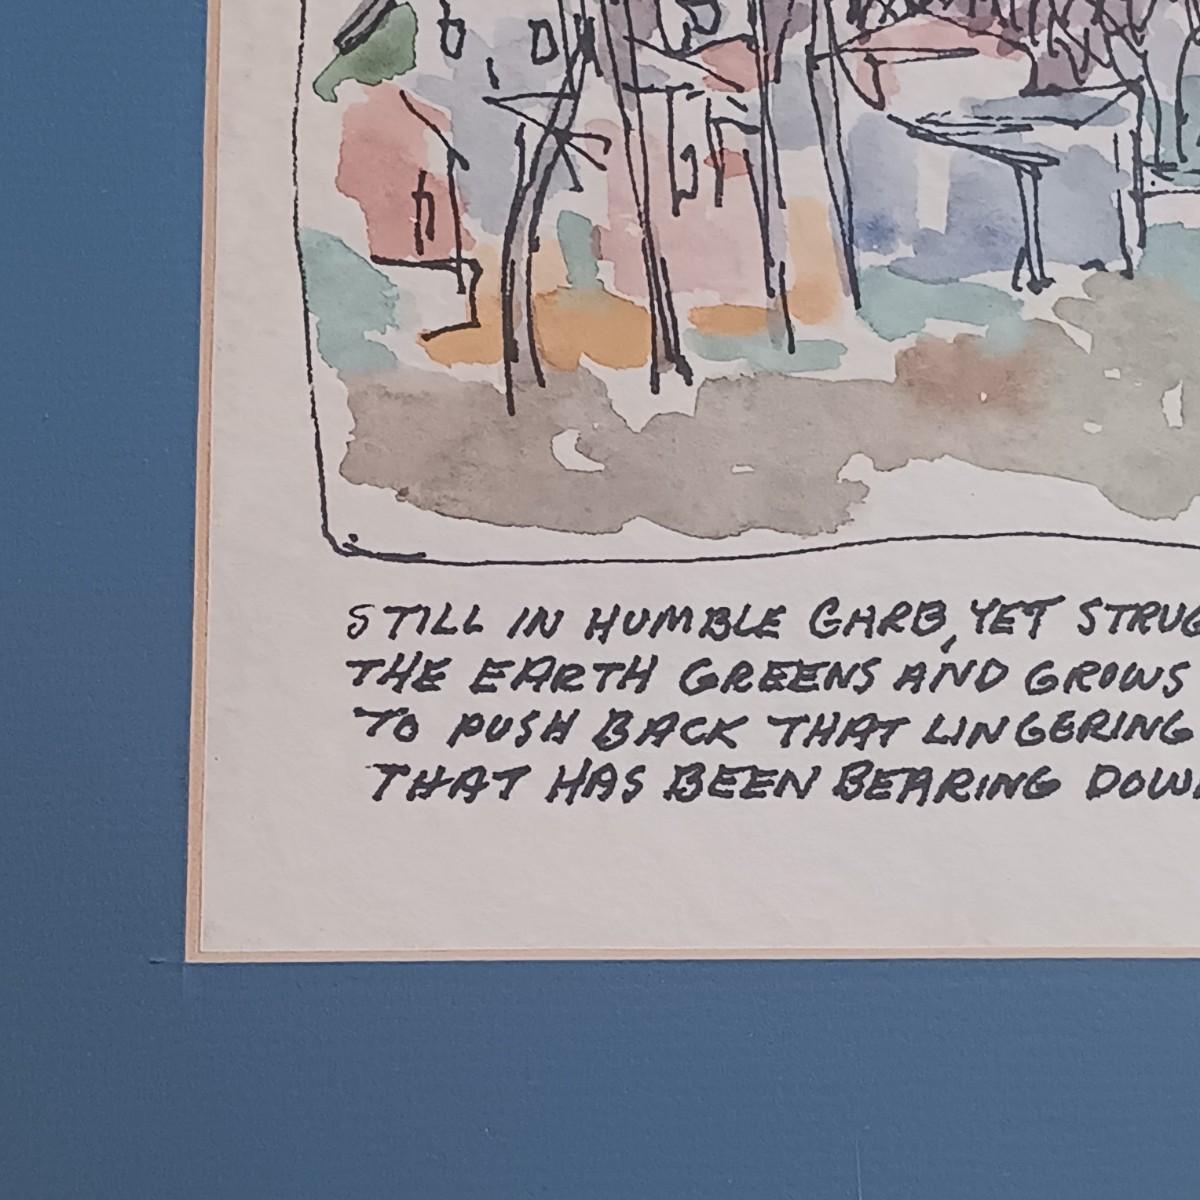 STILL IN HUMBLE GARB, YET STRUG
THE EARTH GREENS AND GROWS
TO PUSH BACK THAT LINGERING
THAT HAS BEEN BEARING DOW